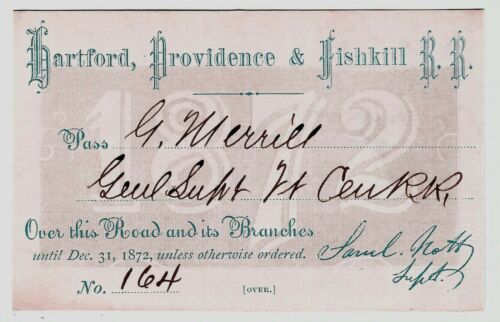 Hartford, Providence & Fishkill R. R.
1872
Pass G. Merrill
Genl Supt Vt Cen RR.
Over this Road and its Branches
until Dec. 31, 1872, unless otherwise ordered.
Saml. Nott
Supt.
No. 164
[OVER.]